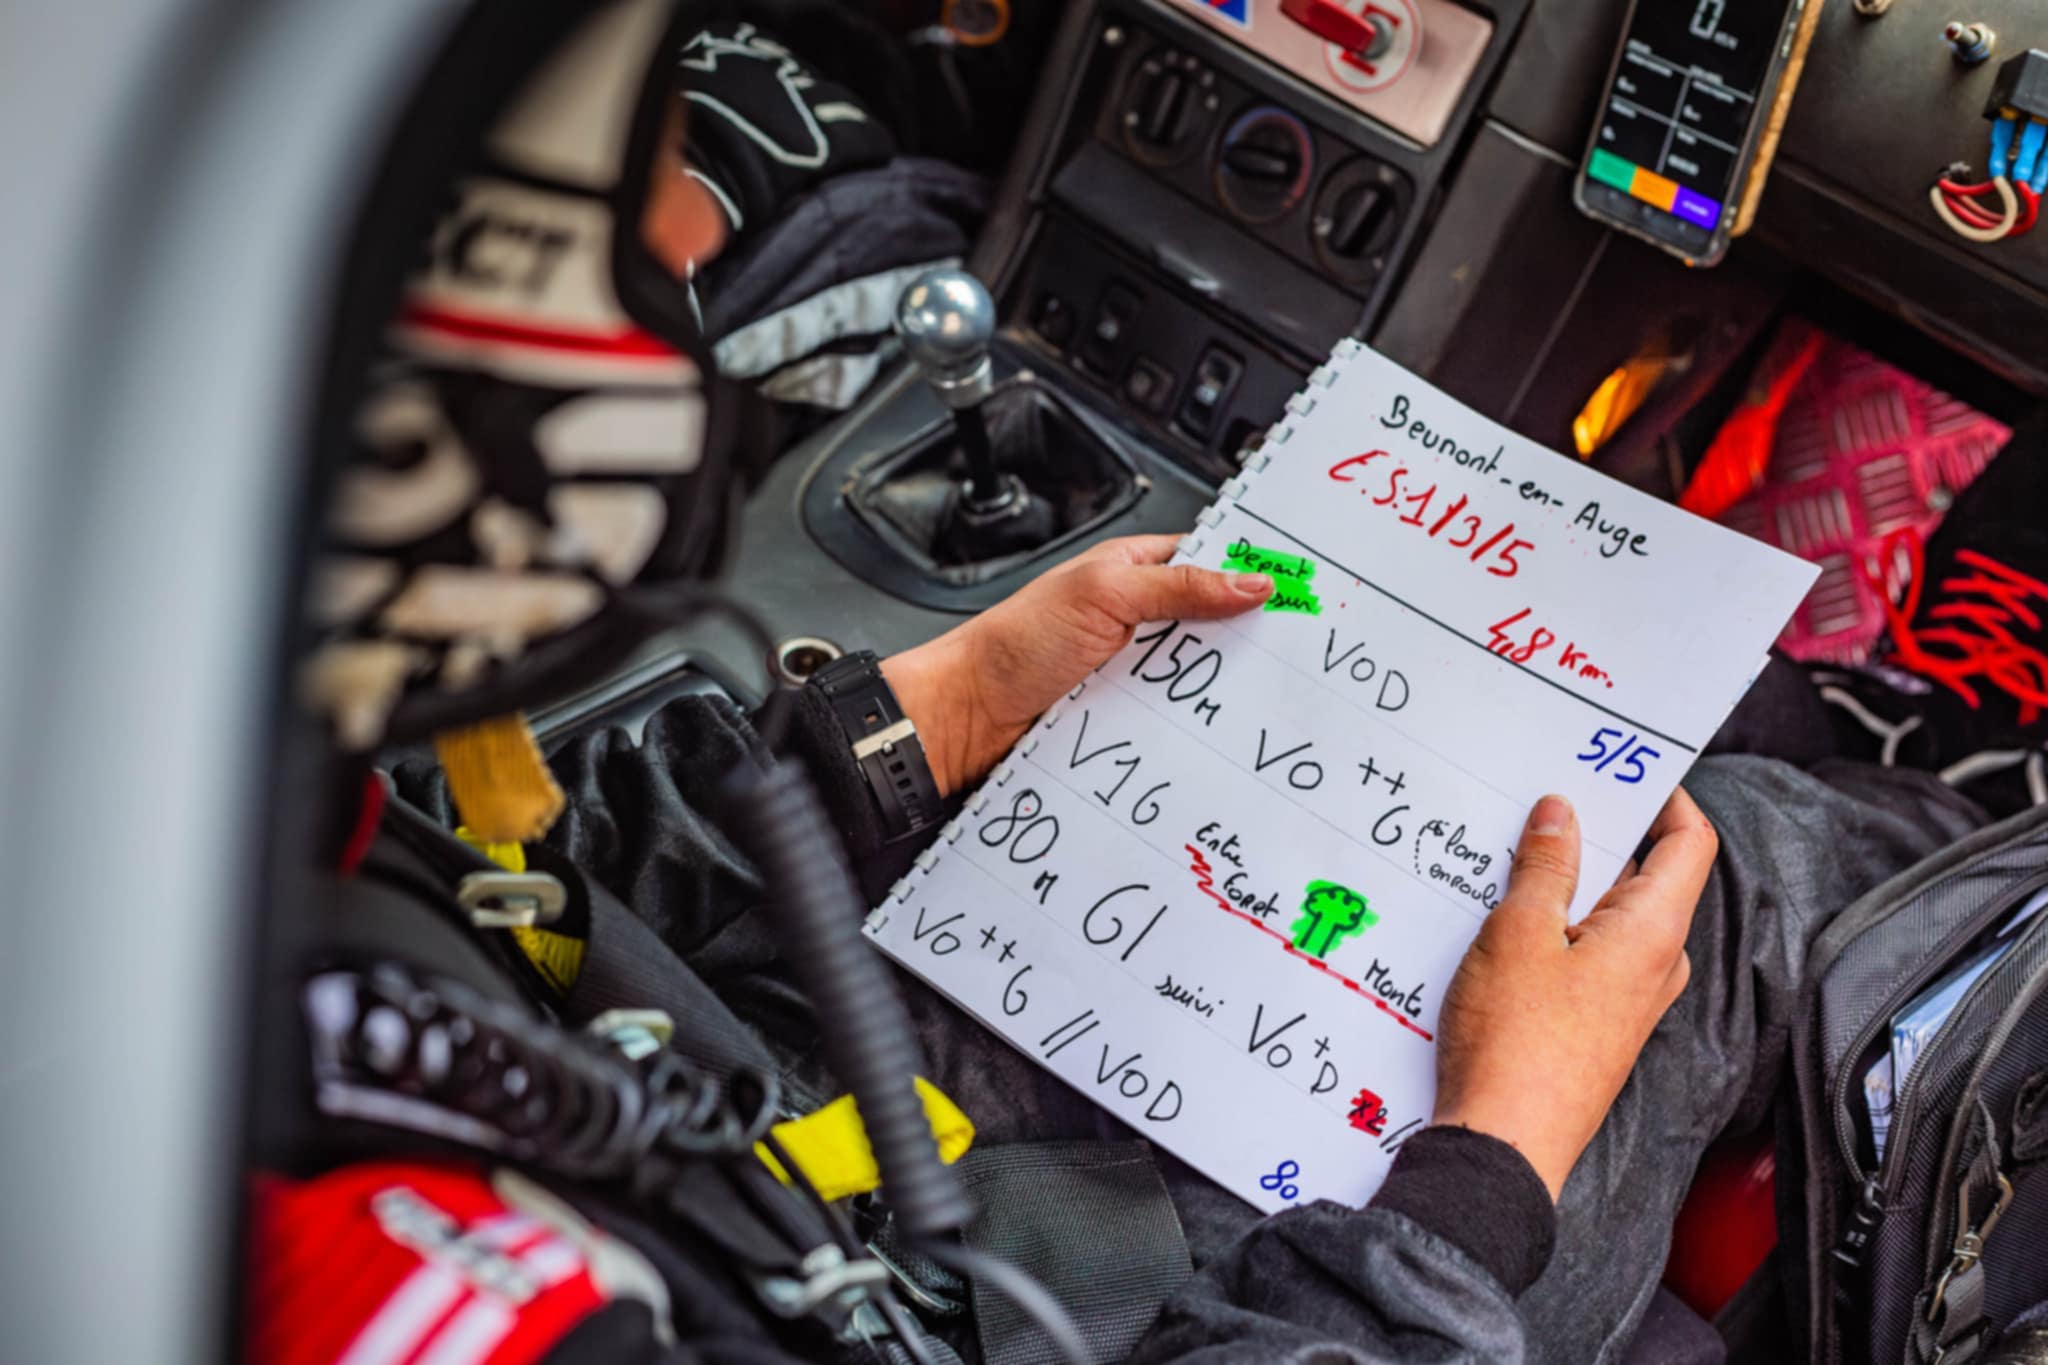 Beumont-en-Auge
E.S:1/3/5
4,8 Km.
Depart
sur
VOD
5/5
150m Vo ++ G
long
V16
Entre Foret
Monte
80m G/ suivi Vo+D x2 //
Vo ++ G // VOD
80